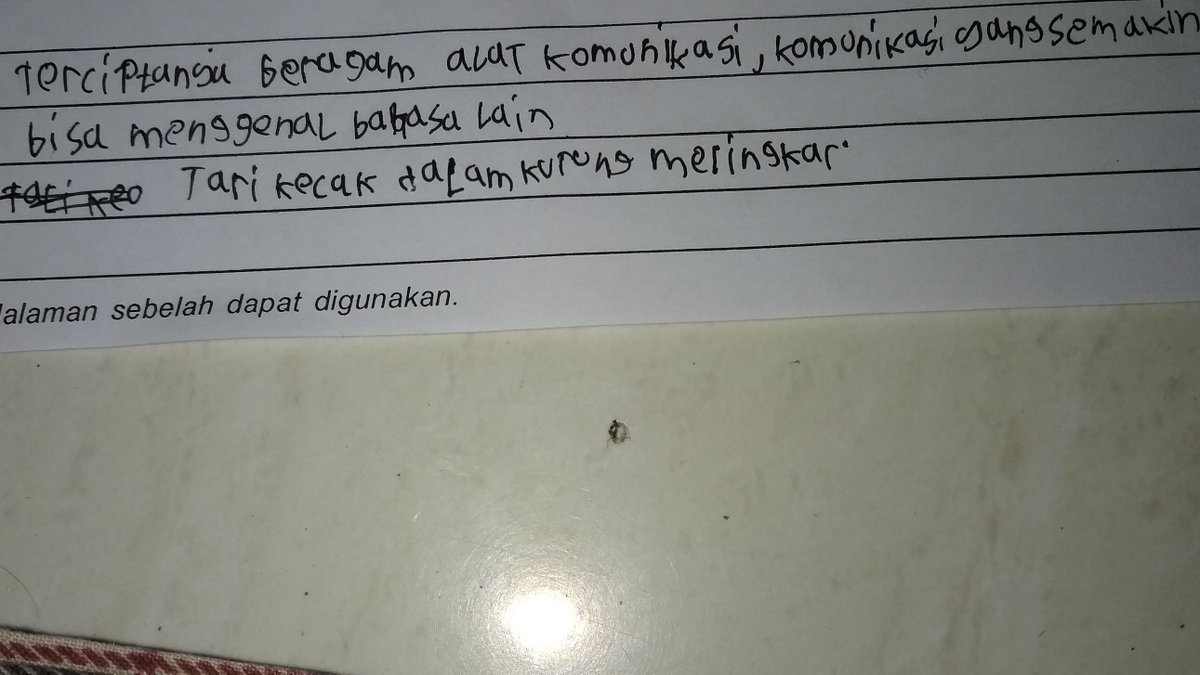 Terciptanya beragam alat komunikasi, komunikasi yang semakin
bisa menggenal bahasa lain
Tari kecak dalam kurung meringkar.
alaman sebelah dapat digunakan.